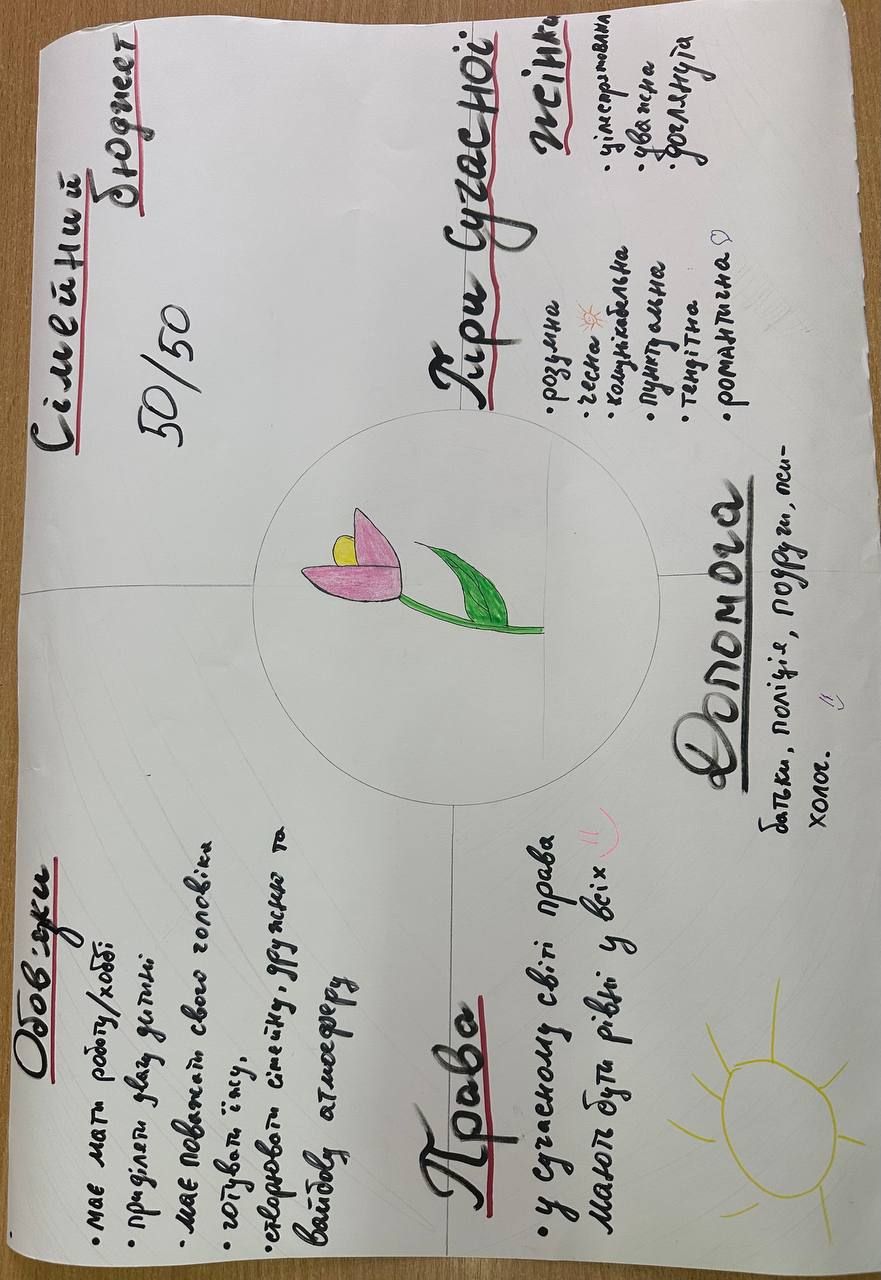 Обов'язки
• має мати роботу/хоббі
• приділяти увагу дитині
• має поважати свого чоловіка
• готувати їжу,
• створювати сімейну, дружню та
вайбову атмосферу
Сімейний
бюджет
50/50
Права
• у сучасному світі права
мають бути рівні у всіх
Допомога
батьки, поліція, подруги, пси-
холог.
Тіри Сучасної
жінки
• розумна
• чесна
• комунікабельна
• пунктуальна
• тендітна
• романтична
• цілеспрямована
• уважна
• доглянута